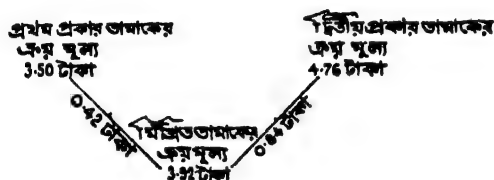 প্রথম প্রকার তামাকের
ক্রয় মূল্য
3·50 টাকা
দ্বিতীয় প্রকার তামাকের
ক্রয় মূল্য
4·76 টাকা
0·42 টাকা
0·84 টাকা
মিশ্রিত তামাকের
ক্রয় মূল্য
3·92 টাকা